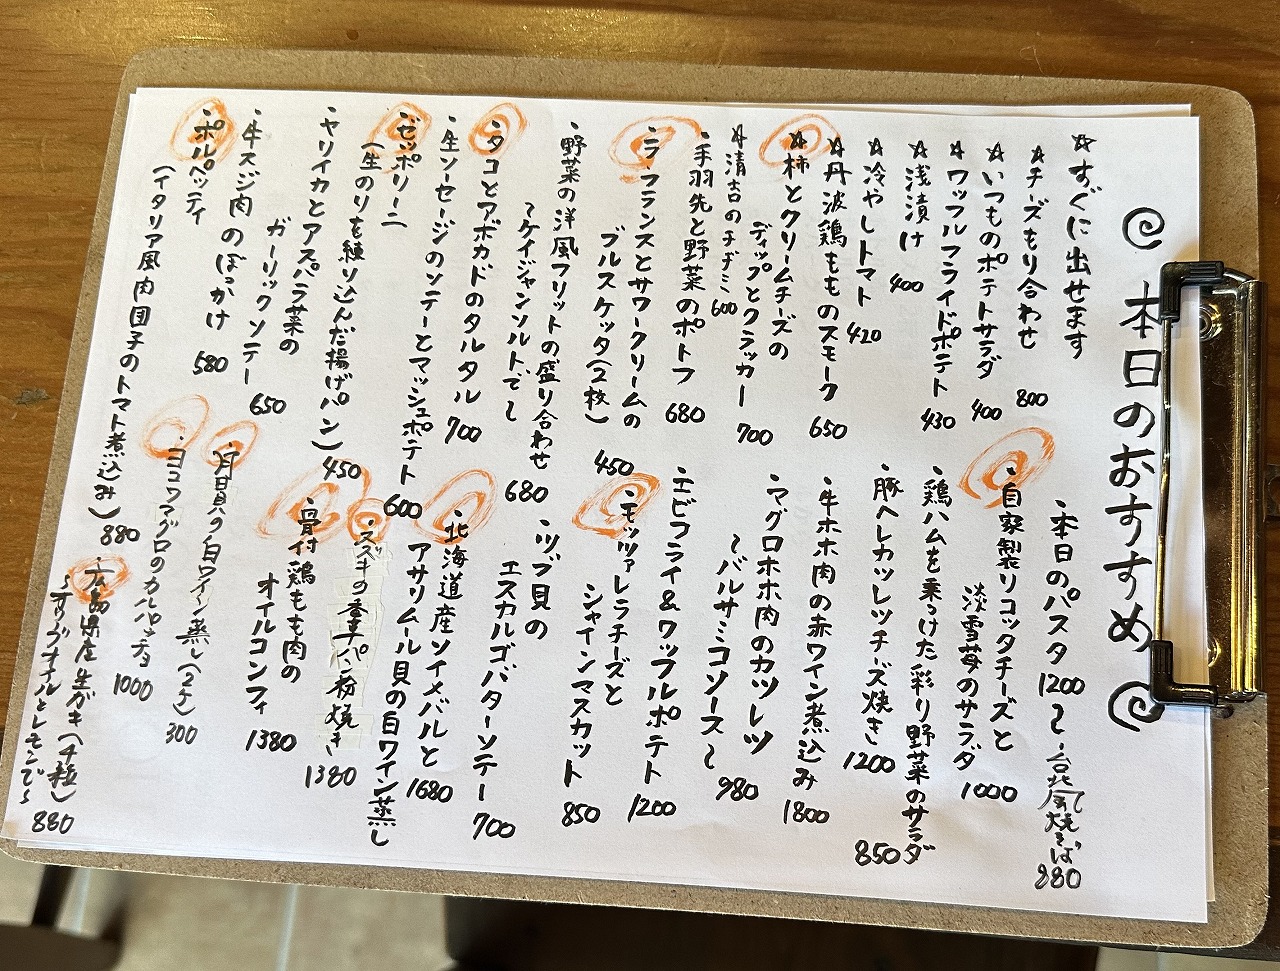 本日のおすすめ
☆すぐに出せます
☆チーズもり合わせ 800
☆いつものポテトサラダ 400
☆ワッフルフライドポテト 430
☆浅漬け 400
☆冷やしトマト 420
☆丹波鶏もものスモーク 650
☆柿とクリームチーズの
ディップとクラッカー 700
☆清吉のチヂミ 600
・手羽先と野菜のポトフ 680
・ラフランスとサワークリームの
ブルスケッタ(2枚) 450
・野菜の洋風フリットの盛り合わせ
〜ケイジャンソルトで〜 680
・タコとアボカドのタルタル 700
・生ソーセージのソテーとマッシュポテト 600
・ゼッポリーニ
(生のりを練り込んだ揚げパン) 450
・ヤリイカとアスパラ菜の
ガーリックソテー 650
・牛スジ肉のぼっかけ 580
・ポルペッティ
(イタリア風肉団子のトマト煮込み) 880
・本日のパスタ 1200〜
・台北風焼そば 880
・自家製リコッタチーズと
淡雪苺のサラダ 1000
・鶏ハムを乗っけた彩り野菜のサラダ 850
・豚ヘレカツレッツチーズ焼き 1200
・牛ホホ肉の赤ワイン煮込み 1800
・マグロホホ肉のカツレツ
〜バルサミコソース〜 980
・エビフライ&ワッフルポテト 1200
・モッツァレラチーズと
シャインマスカット 850
・ツブ貝の
エスカルゴバターソテー 700
・北海道産ソイメバルと
アサリムール貝の白ワイン蒸し 1680
・スズキの香草パン粉焼き 1380
・骨付鶏もも肉の
オイルコンフィ 1380
・月日貝の白ワイン蒸し(2ケ) 300
・ヨコワマグロのカルパッチョ 1000
・広島県産生がき(4粒)
〜オリーブオイルとレモンで〜 880